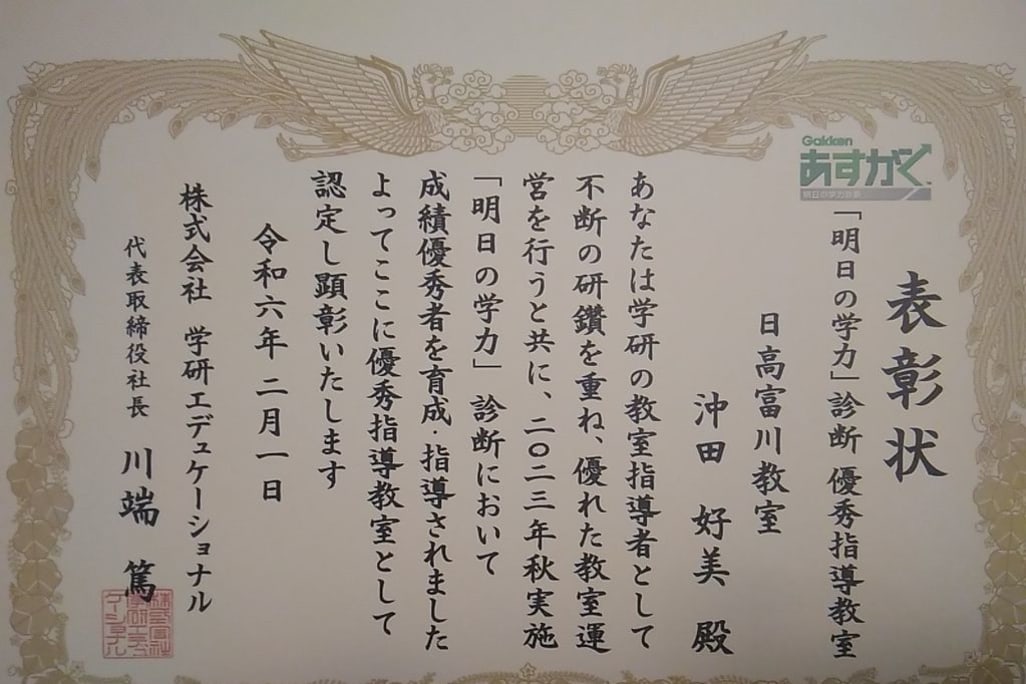 表彰状
Gakken
あすがく
明日の学力診断
「明日の学力」診断 優秀指導教室
日高富川教室
沖田 好美 殿
あなたは学研の教室指導者として
不断の研鑽を重ね、優れた教室運
営を行うと共に、二〇二三年秋実施
「明日の学力」診断において
成績優秀者を育成・指導されました
よってここに優秀指導教室として
認定し顕彰いたします
令和六年 二月一日
株式会社 学研エデュケーショナル
代表取締役社長 川端 篤